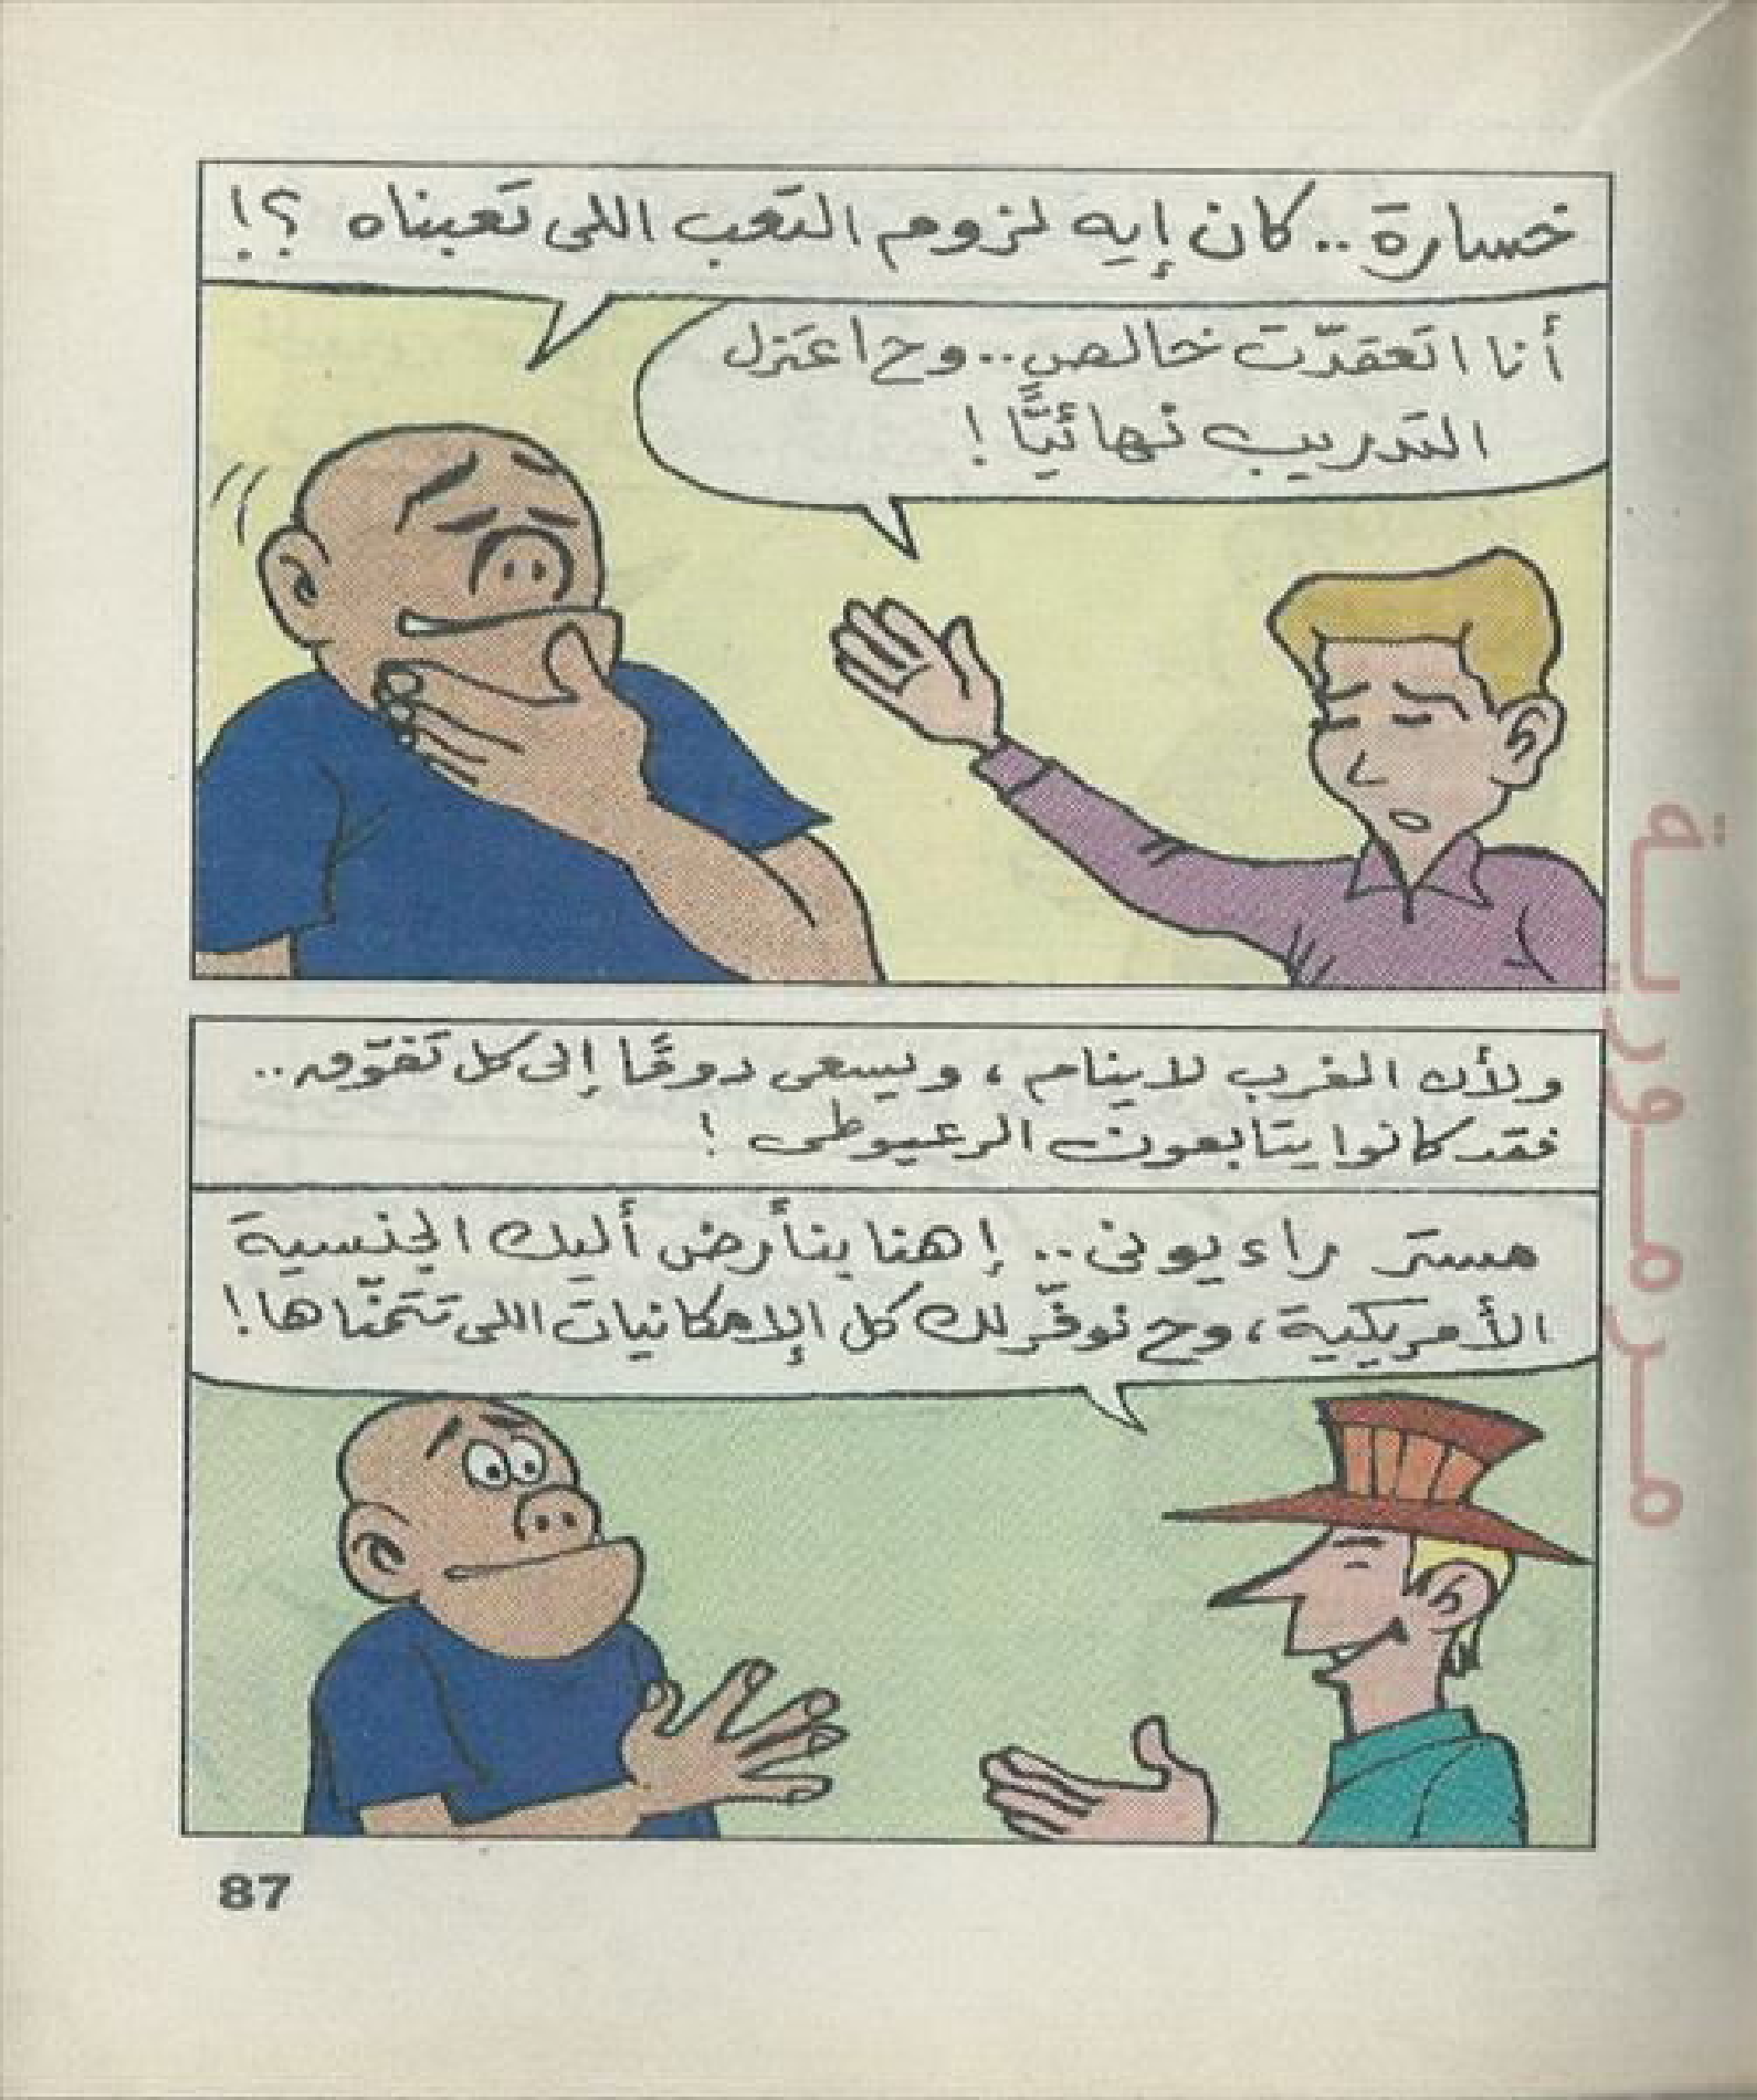 خسارة .. كان إيه لزوم التعب اللى تعبناه ؟!
أنا اتعقدّت خالص .. وح اعتزل
التدريب نهائيًّا !
ولأن الغرب لا ينام ، ويسعى دومًا إلى كل تفوّق ..
فقد كانوا يتابعون الرعيوطى !
مستر راء يونى .. إهنا بنأرض أليك الجنسية
الأمريكية ، وح نوفّر لك كل الإمكانيات اللى تتمنّاها !
87
مرمورية